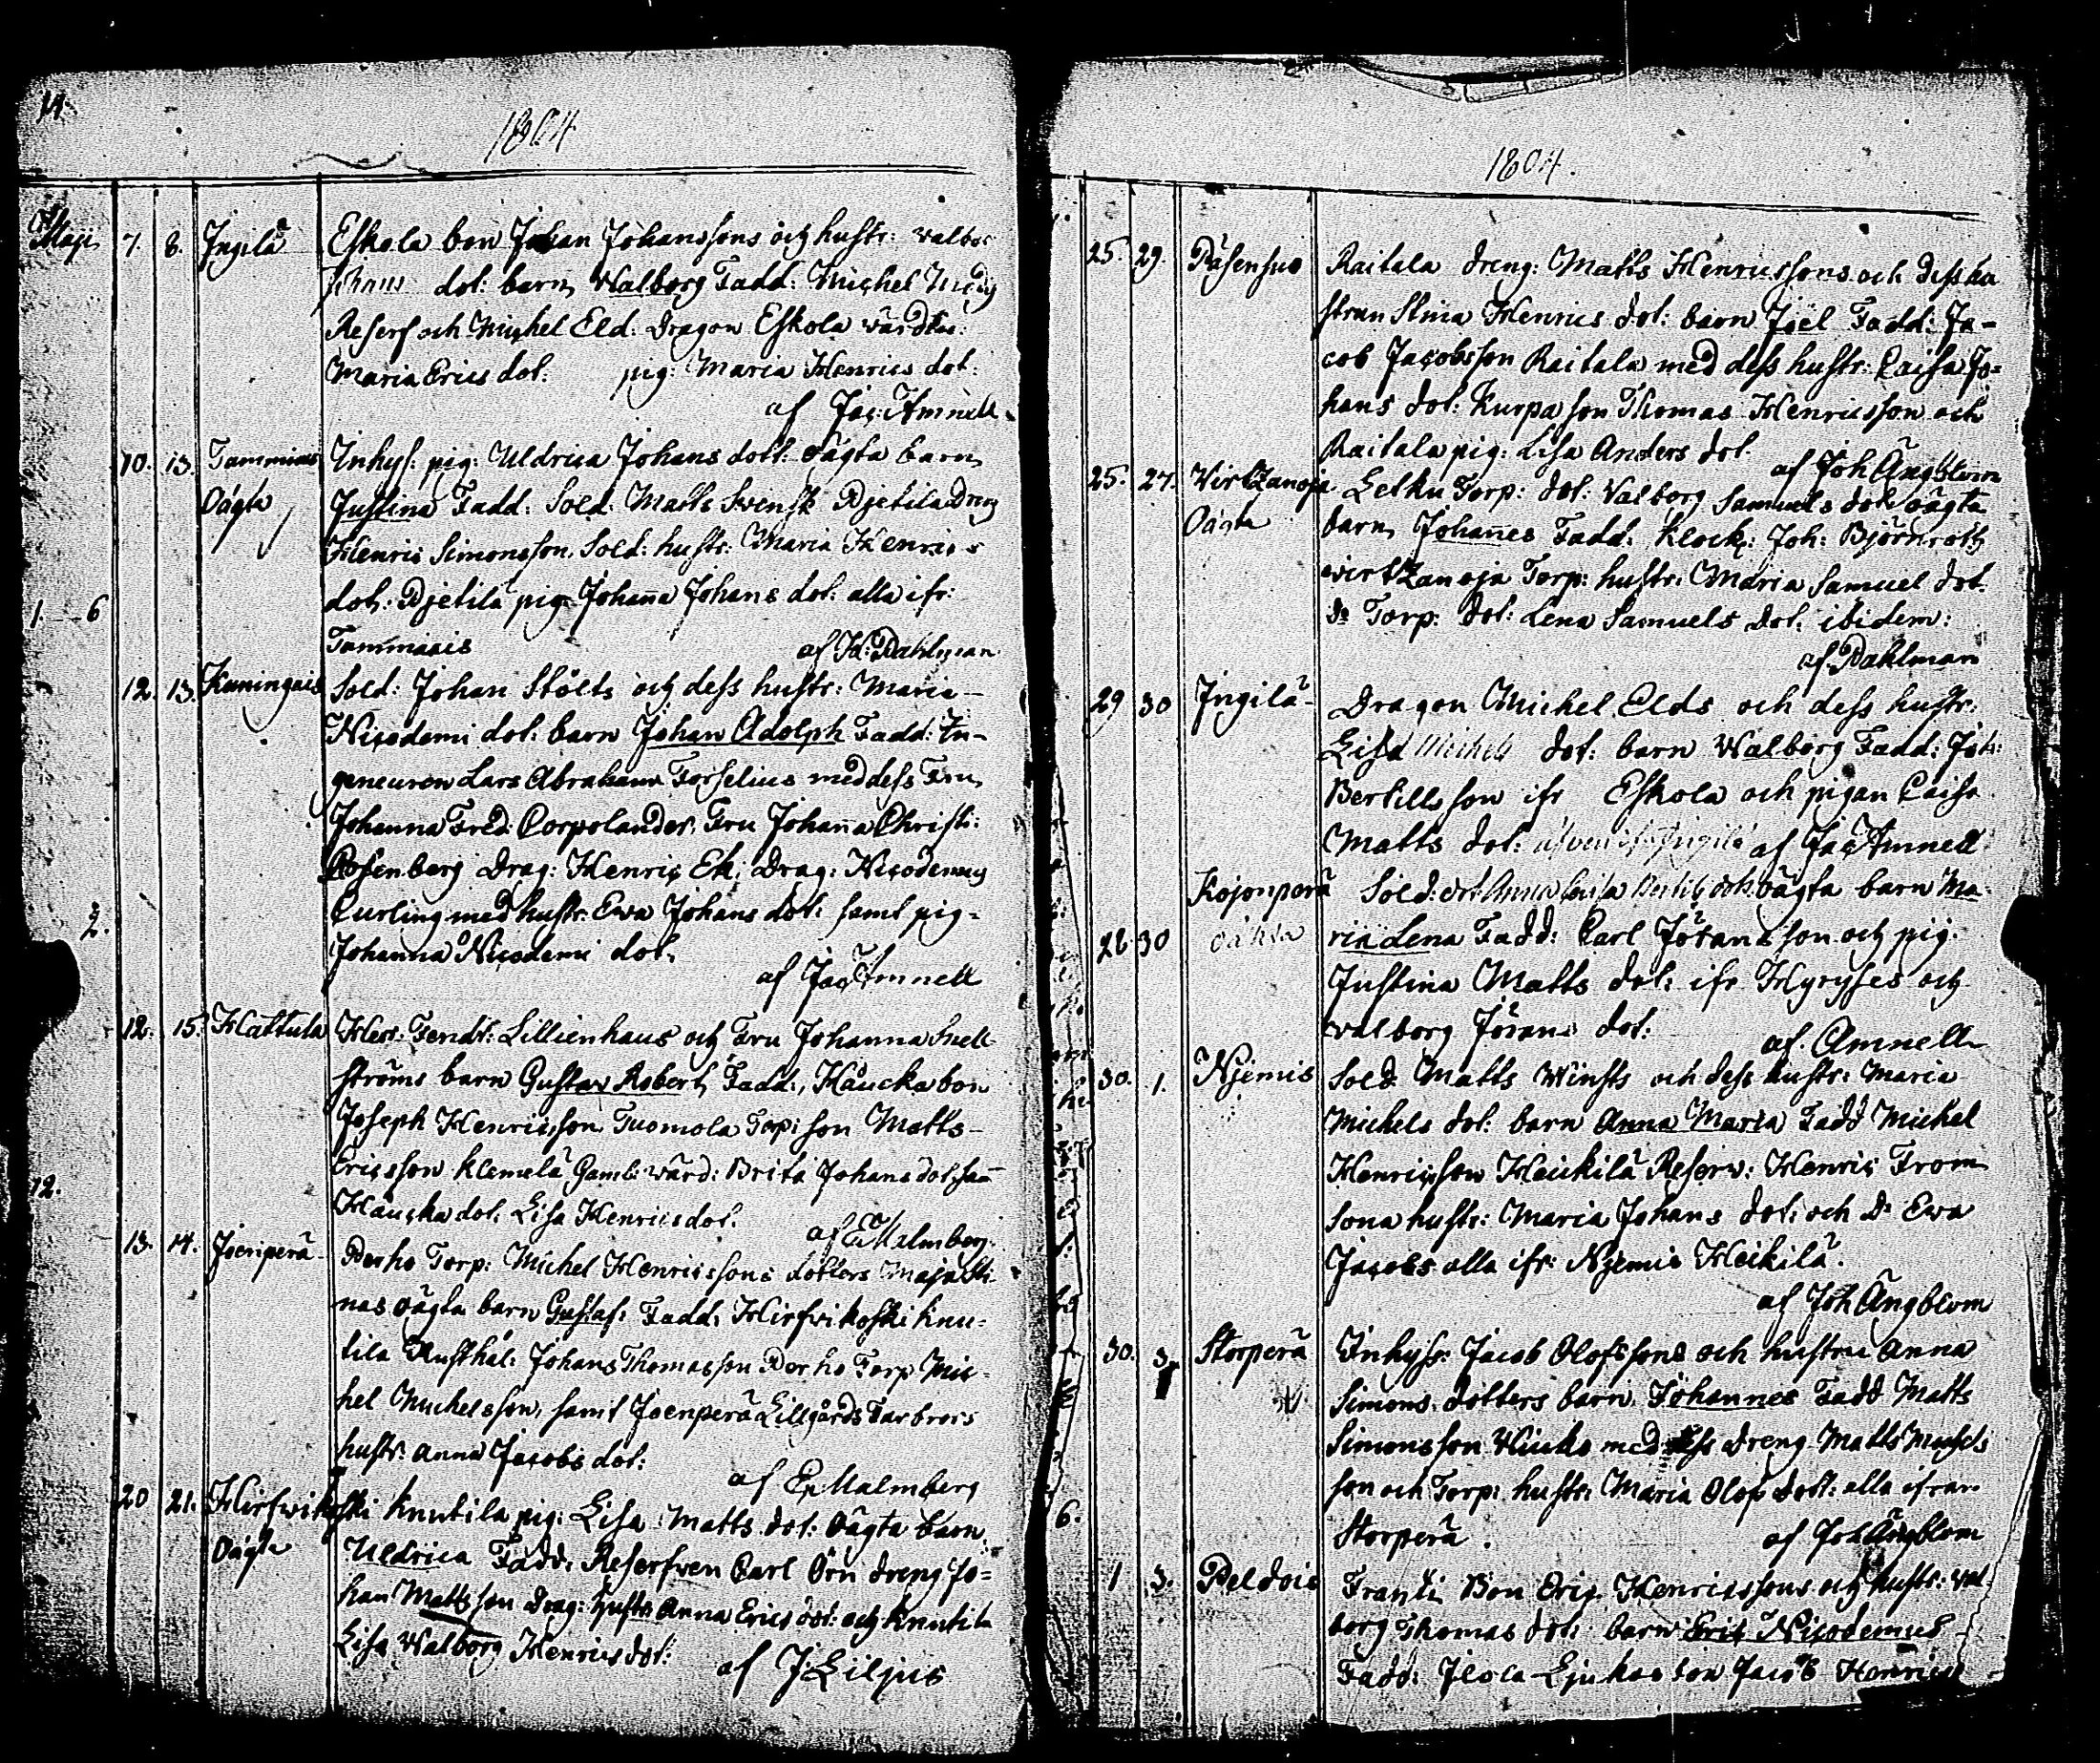 14.
1804
Maji 7. 8. Jngilä Eskola bon Johan Johanssons och hustr: Valbor
Johans dot: barn Walborg Fadd: Michel
Reserf och Michel Eld: Dragon Eskola värdin:
Maria Erics dot: pig: Maria Henrics dot:
af Jac: Amnell
10. 13. Tammiais Jnhys: pig: Uldrica Johans dott: oägta barn
Oägta Justina Fadd: Sold: Matts Svensk Pjetilä Dreng
Henric Simonsson, Sold: hustr: Maria Henrics
1. 6 dot: Pjetilä pig: Johanna Johans dot: alla ifr:
Tammiais af H: Dahlman
12. 13. Kuningais Sold: Johan Stolts och dess hustr: Maria
Nicodemi dot: barn Johan Adolph Fadd: In-
geneuren Lars Abraham Forselius med dess Fru
Johanna Fred: Corpolander, Fru Johanna Christ:
Rosenberg Drag: Henric Ek, Drag: Nicodemus
2. Curling med hustr: Ewa Johans dot: samt pig:
Johanna Nicodemi dot:
af Jac Amnell
12. 15. Hattula Her: Fendr: Lillienhaus och Fru Johanna Snell-
ströms barn Gustav Robert, Fadd: Haucka bon
Joseph Henricsson, Tuomola Torp: son Matts
Ericsson Klemelä Gaml: värd: Brita Johans dot:
12. Haucka dot: Lisa Henrics dot.
af E Malmberg
13. 14. Joenperä Perho Torp: Michel Henricssons dotters Maja Sti-
nas oägta barn Gustaf: Fadd: Hirfvikoski Knu-
tila Rusthål: Johans Thomasson Perho Torp Mic-
hel Michelsson, samt Joenperä Lillgårds Farbrors
hustr: Anna Jacobs dot:
af E Malmberg
20 21. Hirfwikoski Knutila pig: Lisa Matts dot: Oägta barn
Oägta Uldrica Fadd: Reserfven Carl Örn dreng Jo-
han Mattsson Drag: hustr: Anna Erics dot: och Knutila
Lisa Walborg Henrics dot:
af J Liljus
1804.
25. 29. Räsensuo Raitala dreng: Matts Henricssons och dess hu
strun Stina Henrics dot: barn Joël Fadd: Ja-
cob Jacobsson Raitala med dess hustr: Caisa Jo-
hans dot: Kurpa son Thomas Henricsson och
Raitala pig: Lisa Anders dot.
af Joh Ängblom
25. 27. Virtzanoja Letku Torp: dot: Valborg Samuels dot: oägta
Oägta barn Johannes Fadd: Klock: Joh: Björnroth
wirtzanoja Torp: hustr: Maria Samuel dot.
do Torp: dot: Lena Samuels dot: ibidem:
af Dahlman
29 30 Jngilä Dragon Michel Elds och dess hustr:
Lisa Michels dot: barn Walborg Fadd: Joh:
Bertillsson ifr Eskola och pigan Caisa
Matts dot: äfven ifr Jngilä af Jac Amnell
Kojonperä Sold: dot: Anna Caisa Bertils dot: oägta barn Ma-
28 30 oäkta ria Lena Fadd: Carl Göransson och pig:
Justina Matts dot: ifr Hyryses och
Walborg Jörans dot:
af. Amnell
30. 1. Njemis Sold: Matts Winsts och dess hustr: Maria
Michels dot: barn Anna Maria Fadd Michel
Henricsson Heickilä Reserv: Henric From
sona hustr: Maria Johans dot: och Do Ewa
Jacobs alla ifr: Njemis Heikilä.
af Joh Ängblom
30. 3. Storperä Jnhyss: Jacob Olofssons och hustru Anna
Simons dotters barn Johannes Fadd Matts
Simonsson med dess dreng Matts Michels
son och Torp: hustr: Maria Olofs dott: alla ifrån
6. Storperä. af Joh Ängblom
1 3. Peldois Frantzi Bon Eric Henricssons och hustr: Val-
borg Thomas dot: barn Eric Nicodemus
Fadd: Jlola Ljukas son Jacob Henrics